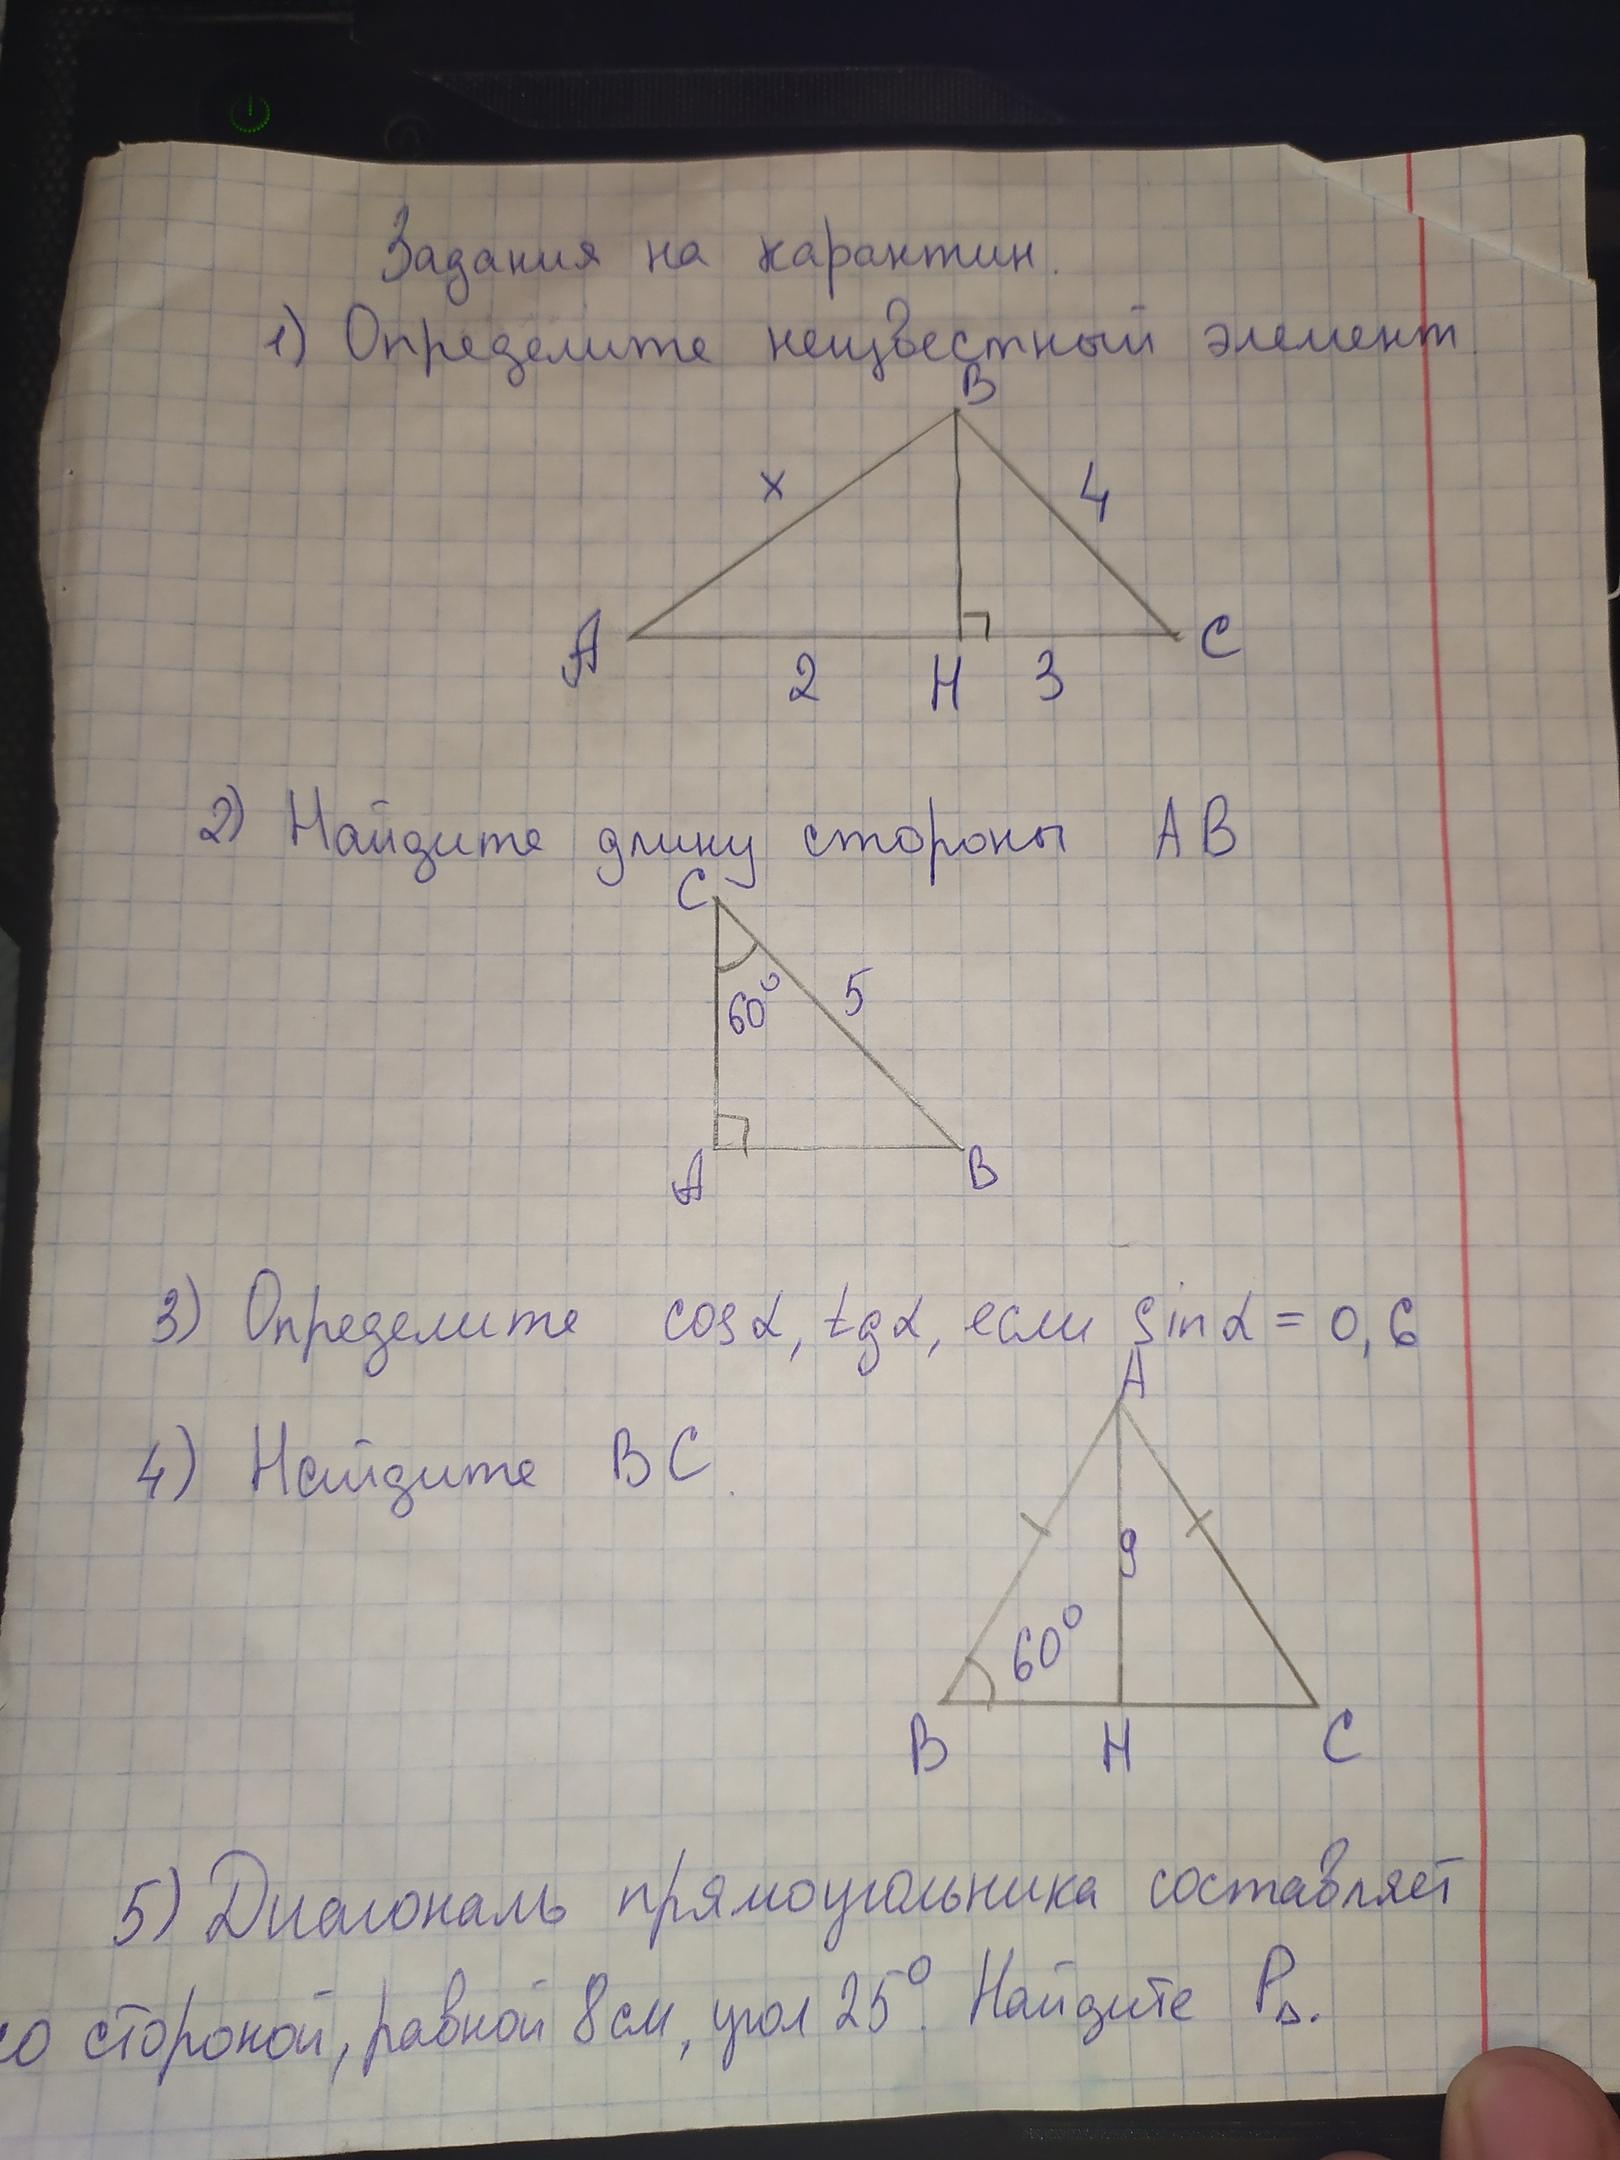 Задания на карантин.
1) Определите неизвестный элемент
B
x
4
A
C
2
H
3
2) Найдите длину стороны AB
C
60°
5
A
B
3) Определите cosα, tgα, если sinα = 0,6
A
4) Найдите BC.
9
60°
B
H
C
5) Диагональ прямоугольника составляет
со стороной, равной 8 см, угол 25°. Найдите P△.